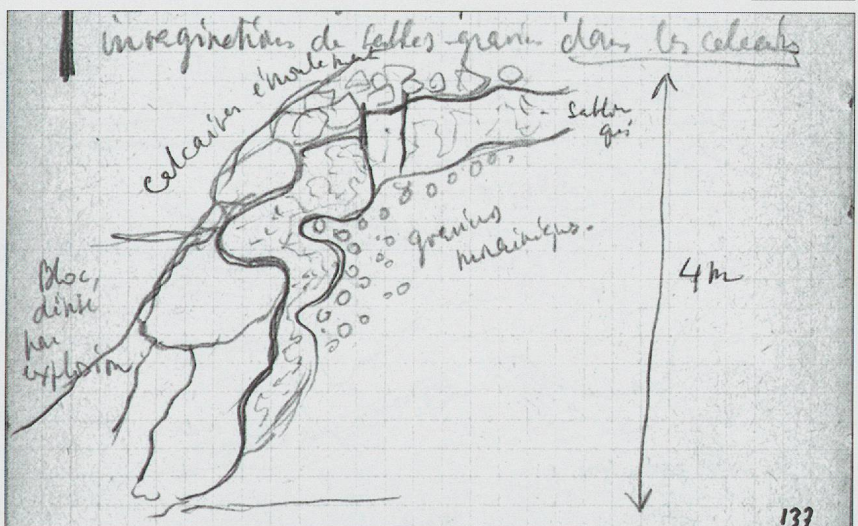 invaginations de sables graviers dans les calcaires
calcaires éboulement
Sablon
gris
graviers
morainiques.
Bloc,
par
explosion
4 m
137